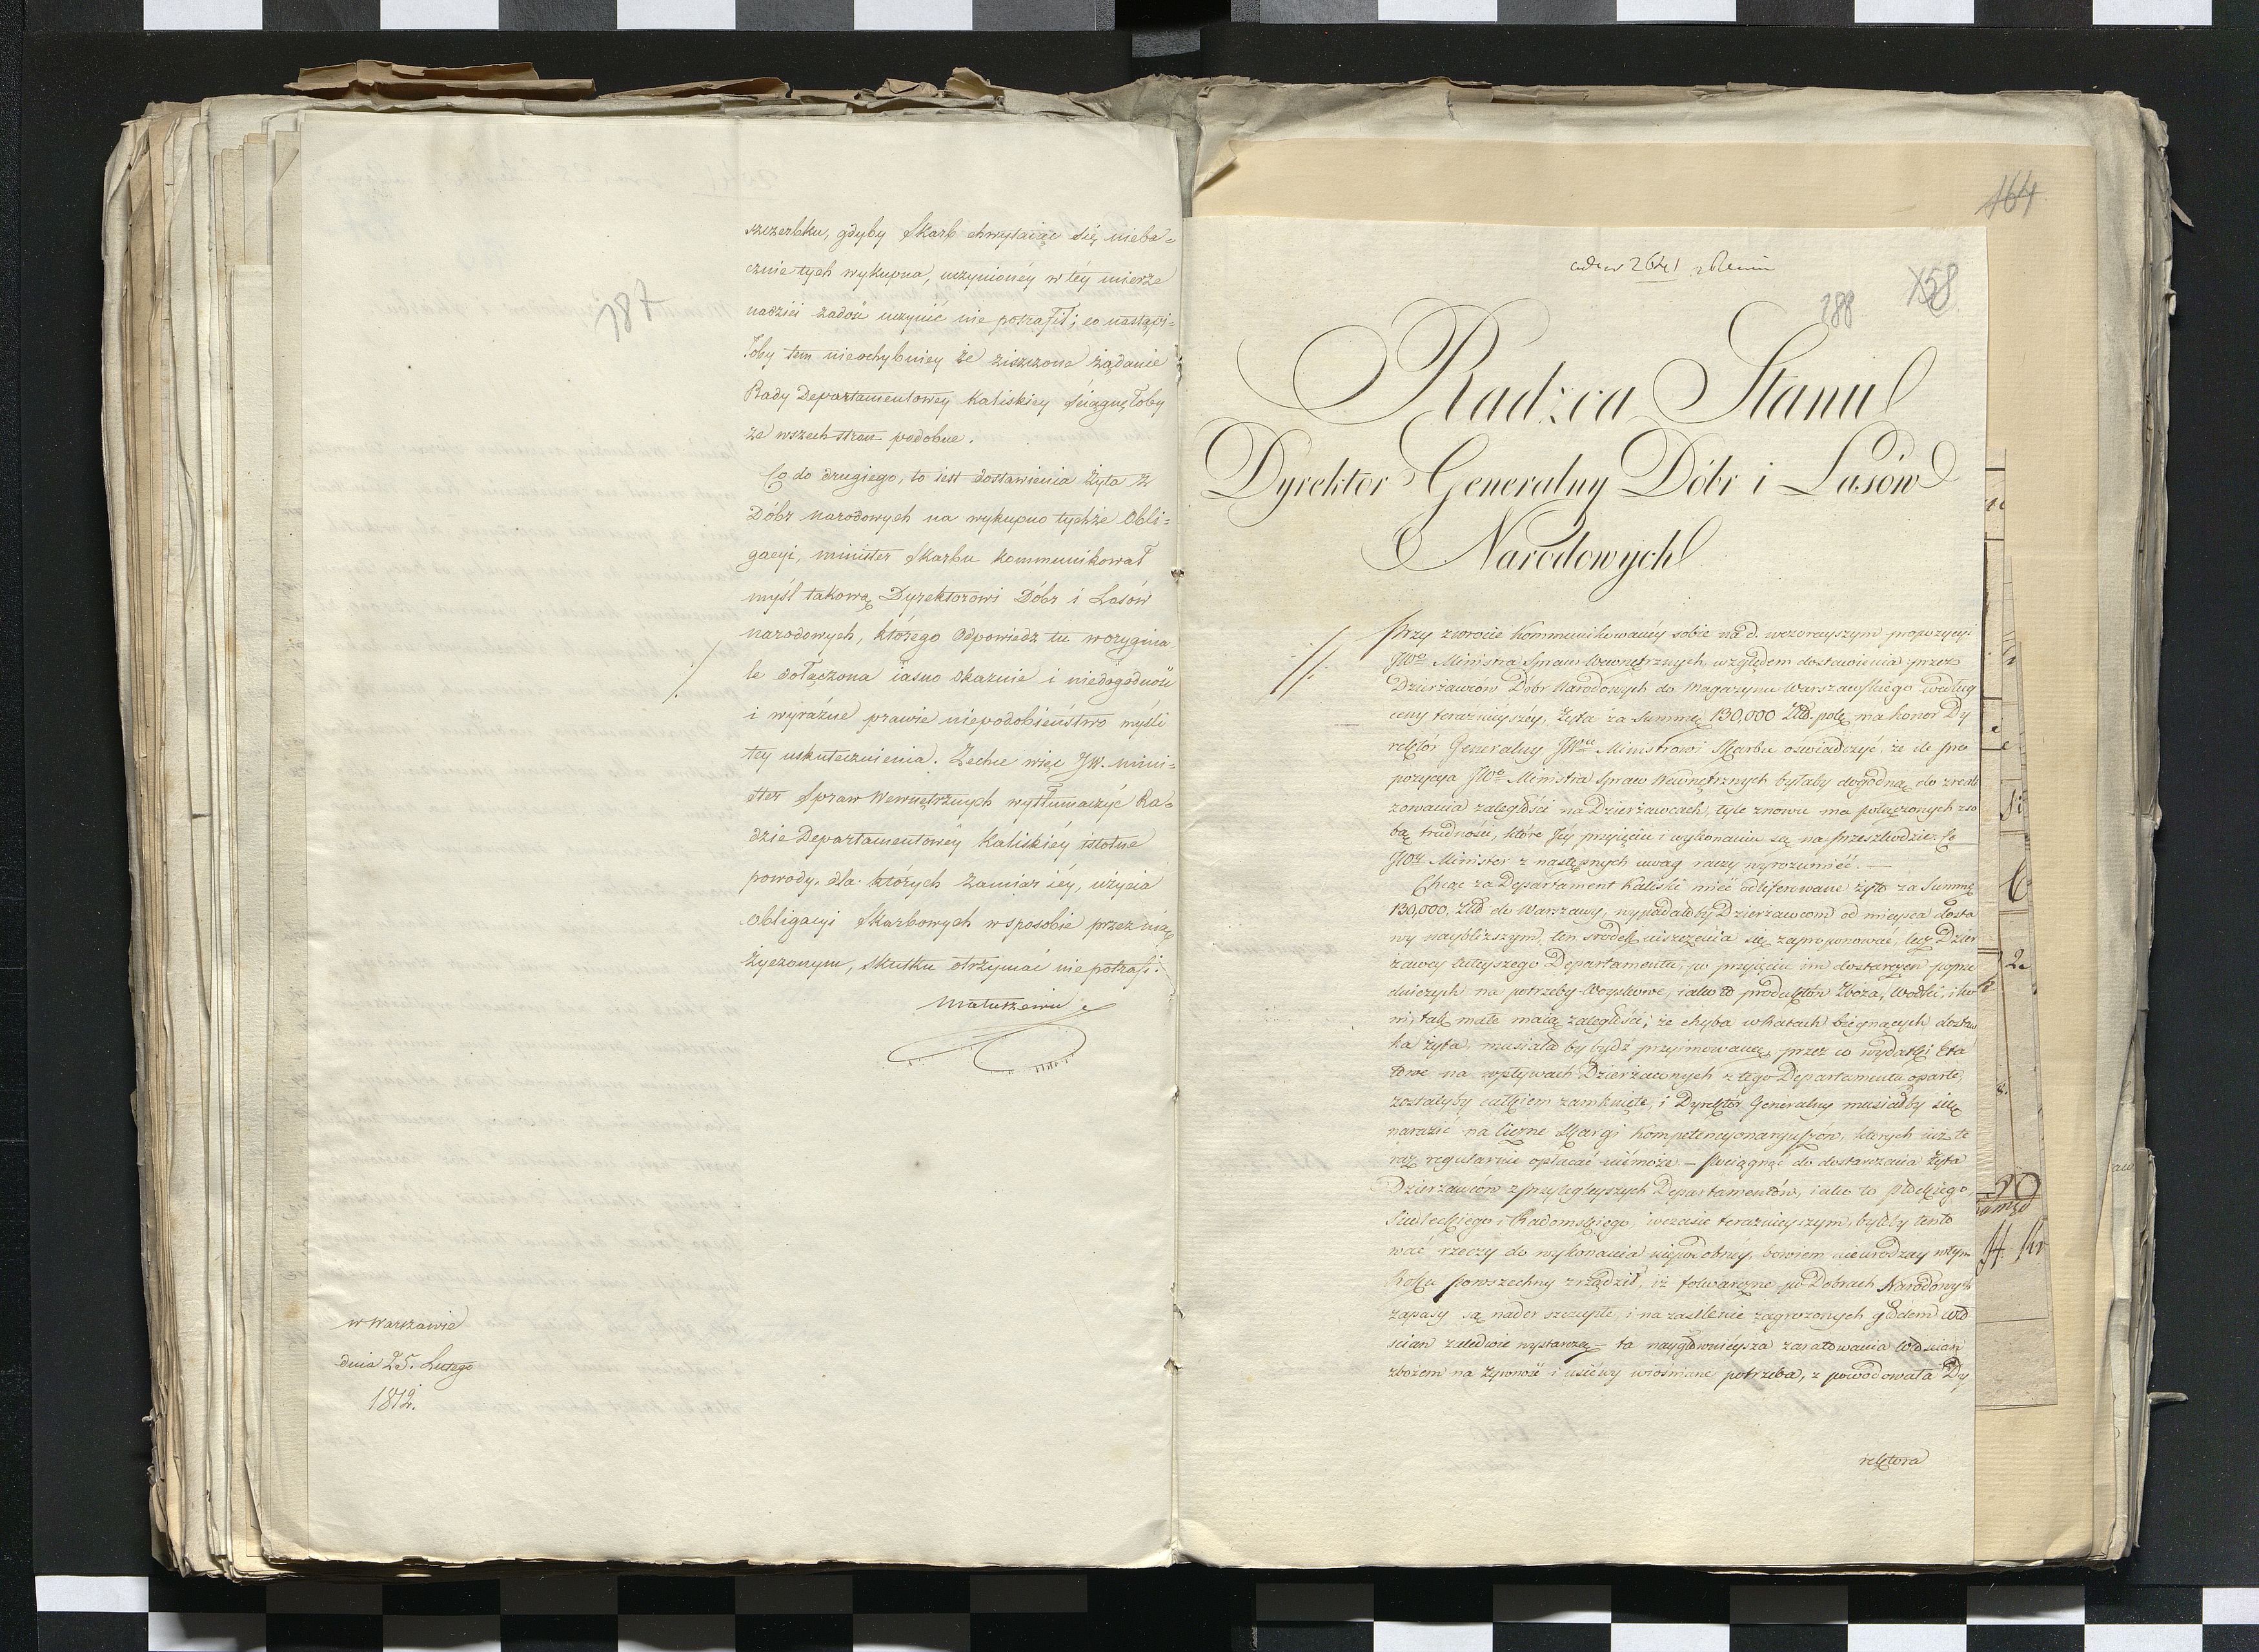 187
szczerbku, gdyby Skarb chwytaiąc się nieba=
cznie tych wykupna, uczynionéy w téy mierze
nadziei zadość uczynić nie potrafił; co nastąpi=
łoby tem nieochybniey że ziszczone żądanie
Rady Departamentowéy Kaliskiey ściągnęłoby
ze wszech stron podobne.
Co do drugiego, to iest dostawienia Żyta z
Dóbr narodowych na wykupno tychże Obli=
gacyi, minister Skarbu kommunikował
myśl takową Dyrektorowi Dóbr i Lasów
narodowych, którego Odpowiedź tu w orygina
le dołączona iasno okazuie i niedogodność
i wyraźne prawie niepodobieństwo myśli
tey uskutecznienia. Zechce więc JW. mini=
ster Spraw Wewnętrznych wytłumaczyć Ra=
dzie Departamentowéy Kaliskiéy istotne
powody, dla których zamiar iéy, użycia
Obligacyi Skarbowych w sposobie przez nią
życzonym, skutku otrzymać nie potrafi.
Matuszewic
w Warszawie
dnia 25. Lutego
1812.
164
188 158
Radzca Stanu
Dyrektor Generalny Dóbr i Lasów
Narodowych
Przy zwrocie kommunikowanéy sobie na d. wczorayszym propozycyi
JWo Ministra Spraw Wewnętrznych, względem dostawienia przez
Dzierżawców Dóbr Narodowych do Magazynu Warszawskiego według
ceny teraźnieyszéy, Żyta za Summę 130,000 Złł. pols. ma honor Dy
rektor Generalny JWmu Ministrowi Skarbu oświadczyć, że ile pro
pozycya JWo Ministra Spraw Wewnętrznych byłaby dogodną do zreali
zowania zaległości na Dzierżawcach, tyle znowu ma połączonych z so
bą trudności, które Jéy przyięciu i wykonaniu są na przeszkodzie. Co
JWy Minister z następnych uwag raczy wyrozumieć.
Chcąc za Departament Kaliski mieć odliferowane żyto za Summę
130,000 Złł do Warszawy, wypadałoby Dzierżawcom od mieysca dosta
wy naybliższym, ten środek uiszczenia się zaproponować, lecz Dzier
żawcy tuteyszego Departamentu, po przyięciu im dostarczeń poprze
dniczych na potrzeby Woyskowe, iako to produktów Zboża, Wódki, i ko
ni, tak małe maią zaległości, że chyba w Ratach bieżących dostaw
ka żyta, musiałaby bydź przyimowaną, przez co wydatki Eta
towe na wpływach Dzierżawnych z tego Departamentu oparte,
zostałyby całkiem zamknięte, i Dyrektor Generalny musiałby się
narazić na liczne skargi kompetencyonaryuszów, których iuż te
raz regularnie opłacać niemoże. – Pociągnąć do dostarczenia Żyta
Dzierżawców z przyległeyszych Departamentów, iako to Płockiego,
Siedleckiego i Radomskiego, w czasie teraźnieyszym, byłoby tento
wać rzeczy do wykonania niepodobnéy, bowiem nieurodzay w tym
Roku powszechny zrządził, iż folwarczne po Dobrach Narodowych
zapasy są nader szczupłe, i na zasilenie zagrożonych głodem Wło
ścian zaledwie wystarczą – ta naygłównieysza zaratowania Włościan
zbożem na żywność i usiewy wiosnane potrzeba, spowodowała Dy
rektora